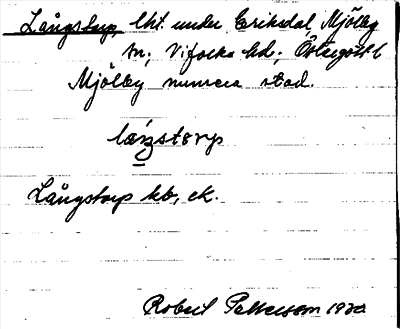 Långstorp, lht. under Eriksdal, Mjölby
sn; Vifolka hd; Östergötl
Mjölby numera stad.
Långstorp kb, ek.
Robert Pettersson 1930